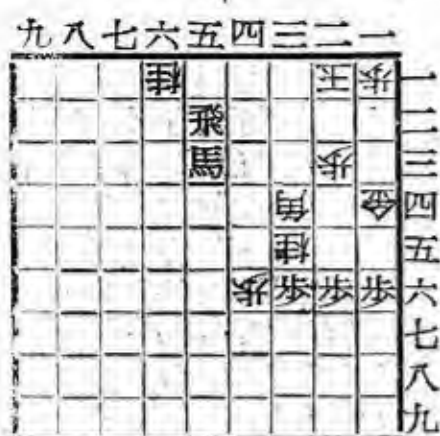 九八七六五四三二一
桂玉歩一
飛二
馬歩三
角金四
桂五
歩歩歩歩六
七
八
九